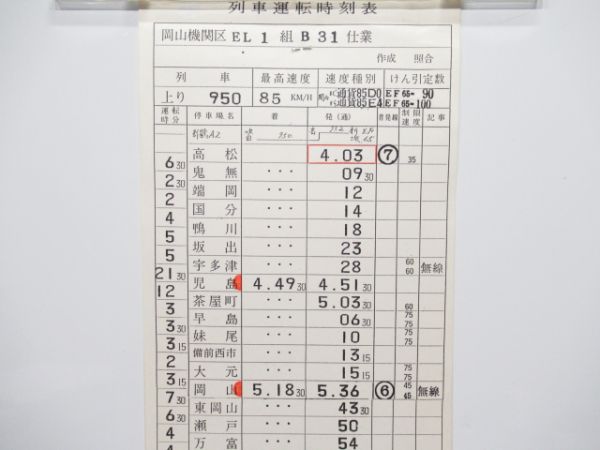 列車運転時刻表
岡山機関区 EL 1 組 B 31 仕業
作成 照合
列車 最高速度 速度種別 けん引定数
上り 950 85 KM/H 通貨85D0 EF65- 90
通貨85E4 EF65-100
運転時分 停車場名 着 発(通) 着発線 制限速度 記事
高松 4.03 ⑦ 35
6 30
鬼無 ・・・ 09 30
2 30
端岡 ・・・ 12
2
国分 ・・・ 14
4
鴨川 ・・・ 18
5
坂出 ・・・ 23
5
宇多津 ・・・ 28 60 60 無線
21 30
児島 4.49 30 4.51 30
12
茶屋町 ・・・ 5.03 30 60
3
早島 ・・・ 06 30 75 75
3 30
妹尾 ・・・ 10 75
3 15
備前西市 ・・・ 13 15
2
大元 ・・・ 15 15 75 75
3 15
岡山 5.18 30 5.36 ⑥ 45 45 無線
7 30
東岡山 ・・・ 43 30
6 30
瀬戸 ・・・ 50
4
万富 ・・・ 54
4